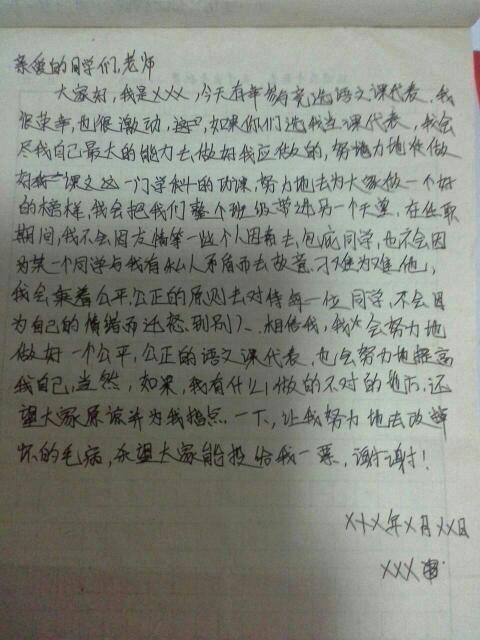 亲爱的同学们,老师
大家好,我是XXX,今天有幸参与竞选语文课代表,我
很荣幸,也很激动,如果你们选我当课代表,我会
尽我自己最大的能力去做好我应做的,努力地在做
好语文这一门学科的功课,努力地去为大家做一个好
的榜样,我会把我们整个班级带进另一个天堂,在任职
期间,我不会因友情等一些个人因素去包庇同学,也不会因
为某一个同学与我有私人矛盾而去故意刁难为难他,
我会秉着公平,公正的原则去对待每一位同学,不会因
为自己的情绪而迁怒到别人、相信我,我会努力地
做好一个公平,公正的语文课代表,也会努力地提高
我自己,当然,如果,我有什么做的不对的地方,还
望大家原谅并为我指点一下,让我努力地去改掉
坏的毛病,希望大家能投给我一票,谢谢!
XXX年X月XX日
XXX